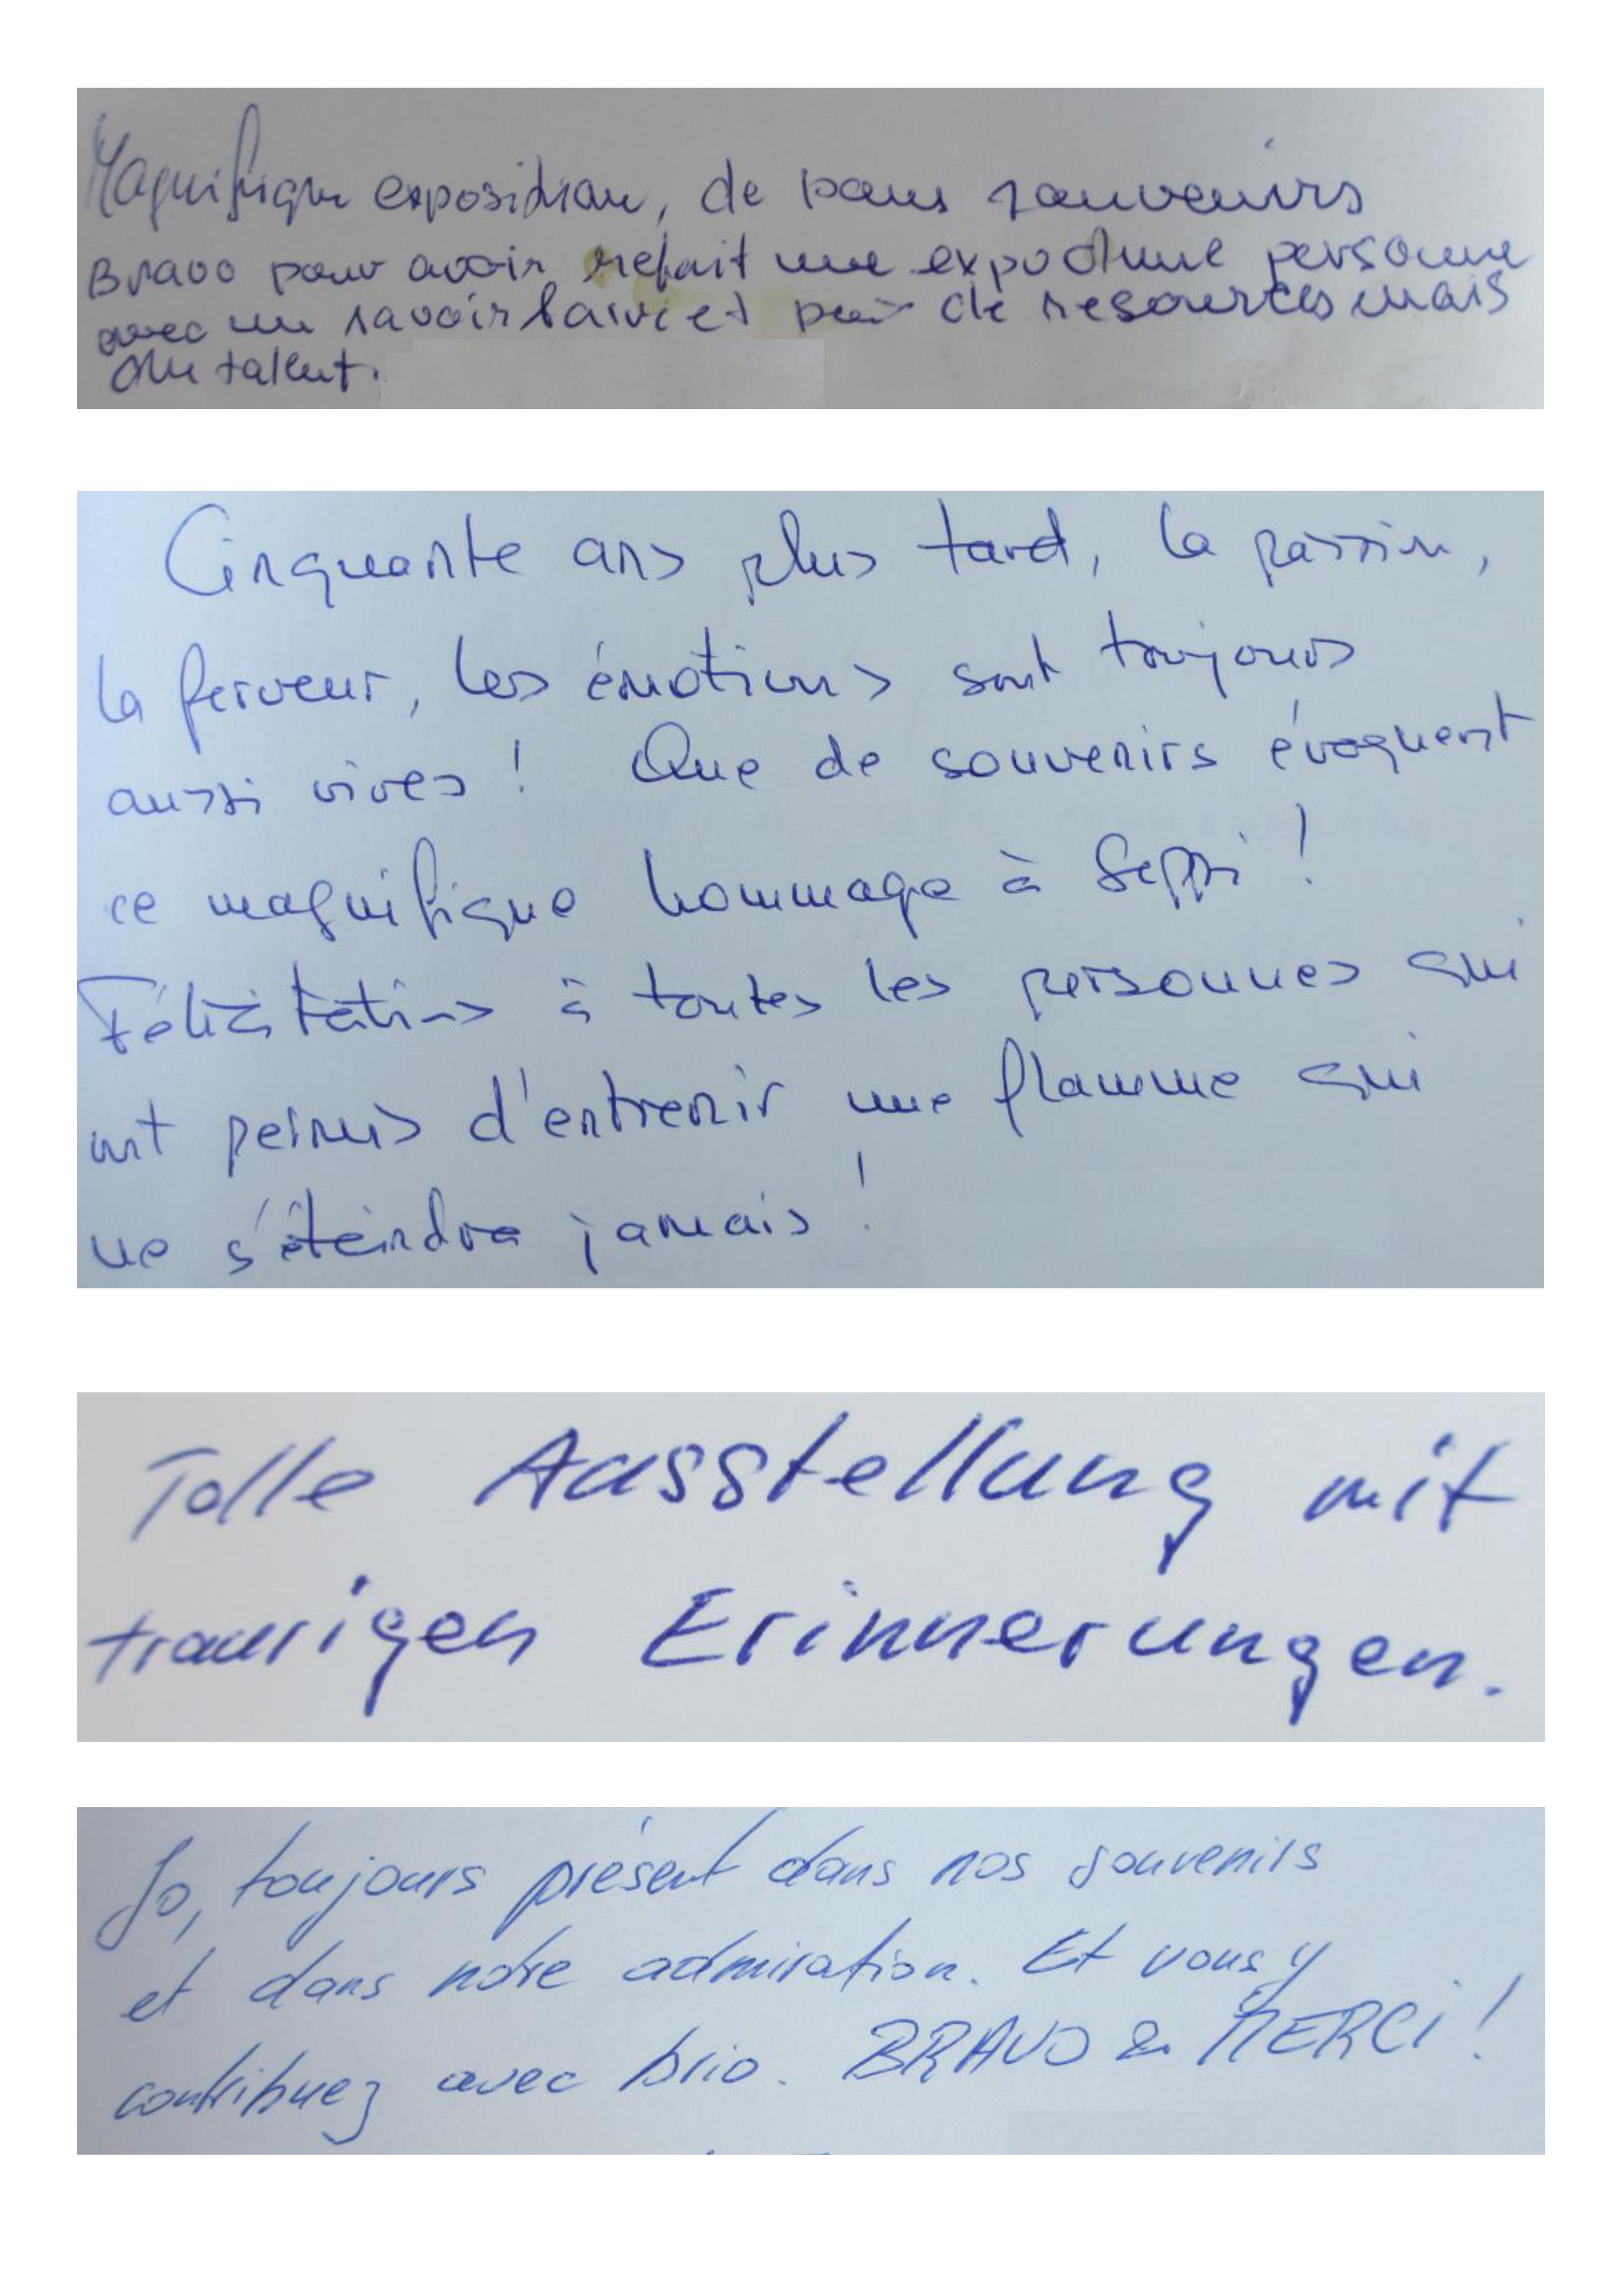 Magnifique exposition, de bons souvenirs
Bravo pour avoir refait une expo d'une personne
avec un savoir faire et peu de resources mais
du talent.
Cinquante ans plus tard, la passion,
la ferveur, les émotions sont toujours
aussi vives ! Que de souvenirs évoquent
ce magnifique hommage à Seppi !
Félicitations à toutes les personnes qui
ont permis d'entrenir une flamme qui
ne s'éteindra jamais !
Tolle Ausstellung mit
traurigen Erinnerungen.
Jo, toujours présent dans nos souvenirs
et dans notre admiration. Et vous y
contribuez avec brio. BRAVO & MERCI !